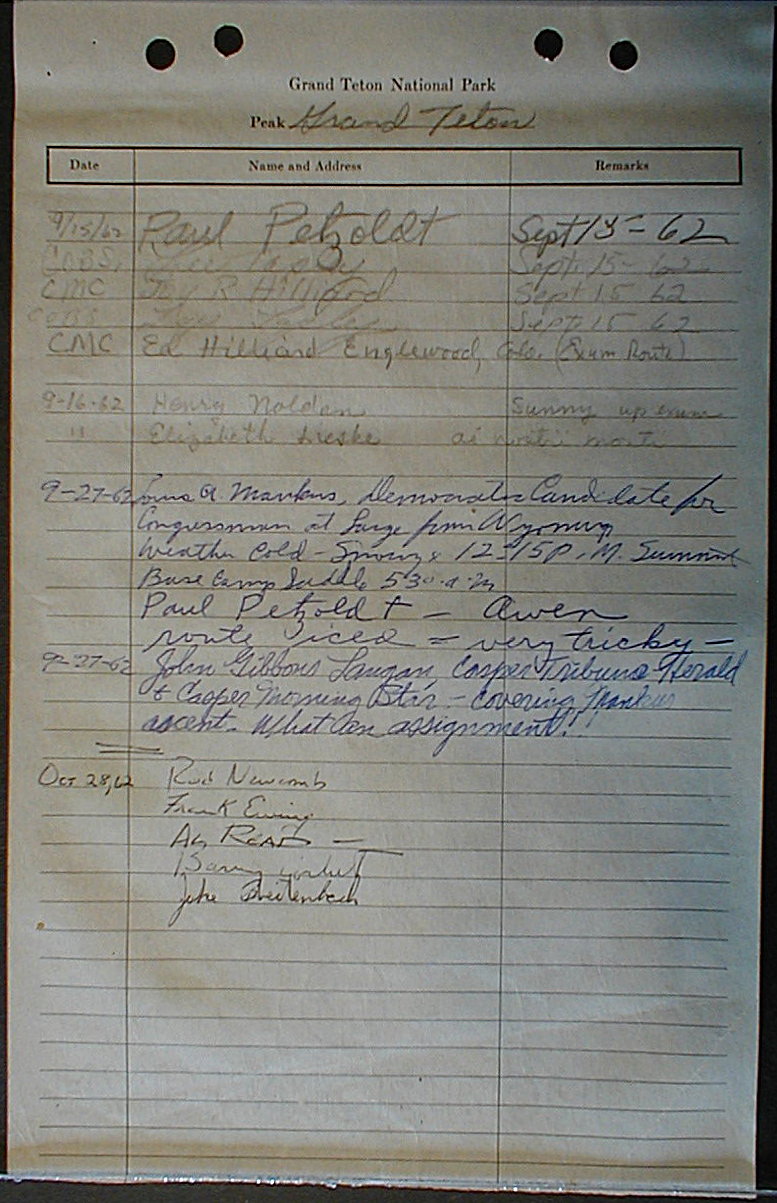 Grand Teton National Park
Peak Grand Teton
Date Name and Address Remarks
9/15/62 Paul Petzoldt Sept 15 - 62
COBS, Sept. 15 - 62
CMC Joy R Hilliard Sept 15 62
COBS Sept. 15 62
CMC Ed Hilliard Englewood, Colo. (Exum Route)
9-16-62 Henry Sunny up exum
" Elizabeth
9-27-62 Louis A. Mankus, Democratic Candidate for
Congressman at Large from Wyoming
Weather Cold - Snowy & 12:15 P.M. Summit
Base Camp Saddle 530 a.m
Paul Petzoldt - Owen
route iced = very tricky -
9-27-62 John Gibbons Langan, Casper Tribune-Herald
& Casper Morning Star - covering Mankus
ascent. What an assignment!!!
Oct 28, 62 Rod Newcomb
Frank Ewing
Al Read
Barry Corbet
Jake Breitenbach